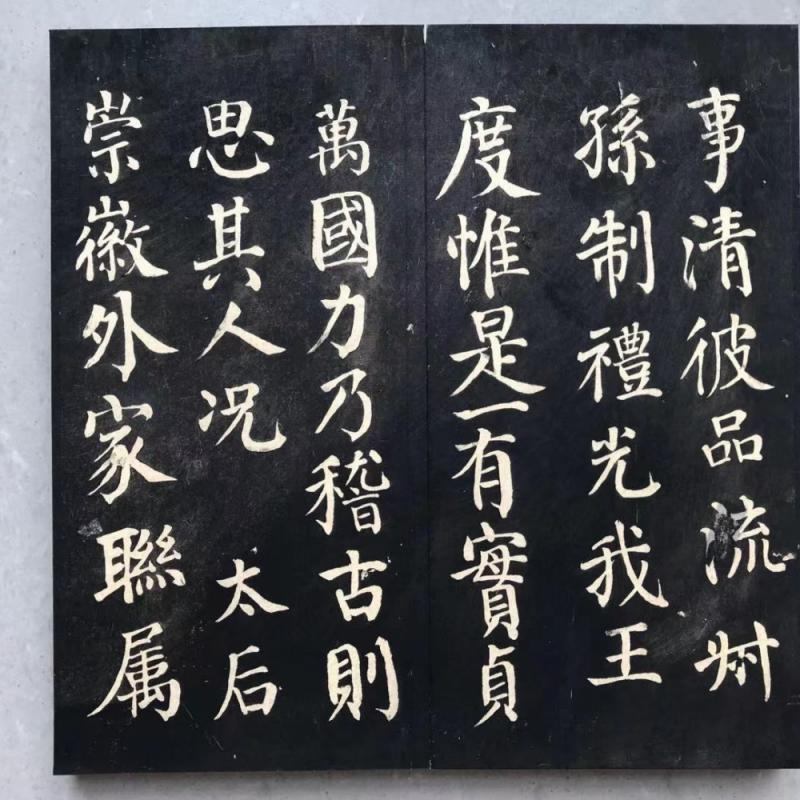 事清彼品流叔
孫制禮光我王
度惟是一有實貞
萬國力乃稽古則
思其人况 太后
崇徽外家聯属